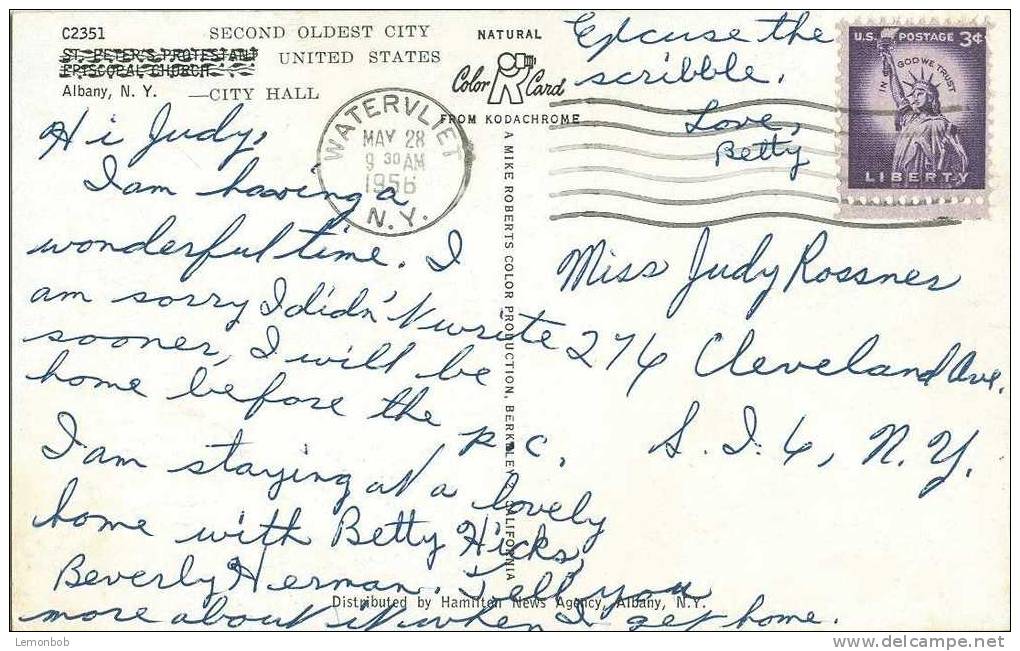 C2351
SECOND OLDEST CITY
ST. PETER'S PROTESTANT
UNITED STATES
EPISCOPAL CHURCH
Albany, N. Y. —CITY HALL
NATURAL
Color Card
FROM KODACHROME
WATERVLIET
MAY 28
9 30 AM
1956
N.Y.
U.S. POSTAGE 3¢
IN GOD WE TRUST
LIBERTY
Hi Judy,
I am having a
wonderful time. I
am sorry I didn't write
sooner, I will be
home before the
p.c.
I am staying at a lovely
home with Betty Hicks,
Beverly Herman. Tell you
more about it when I get home.
Excuse the
scribble.
Love,
Betty
Miss Judy Rossner
276 Cleveland Ave.
S. I. 6, N. Y.
A MIKE ROBERTS COLOR PRODUCTION, BERKELEY 2 CALIFORNIA
Distributed by Hamilton News Agency, Albany, N.Y.
Lemonbob
www.delcampe.net